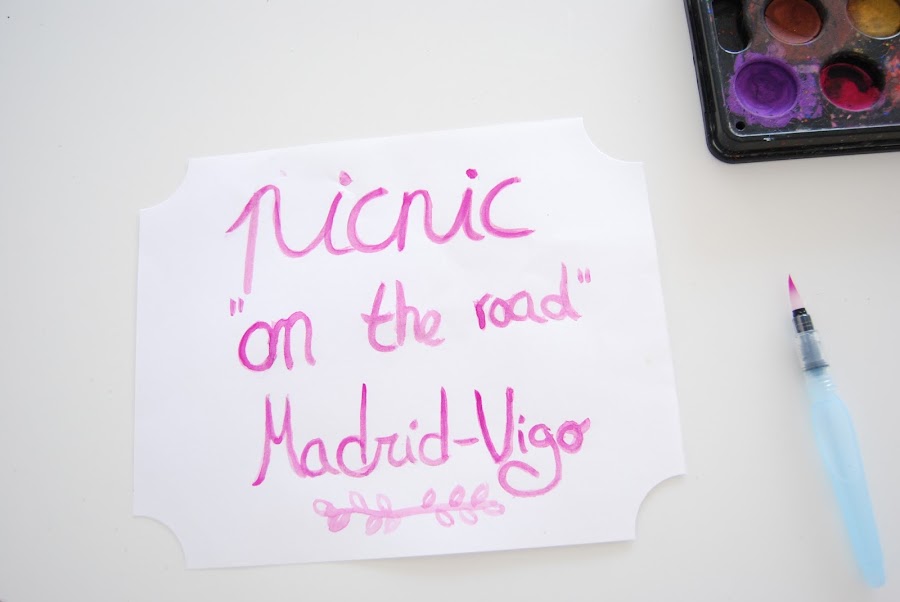 picnic
"on the road"
Madrid-Vigo